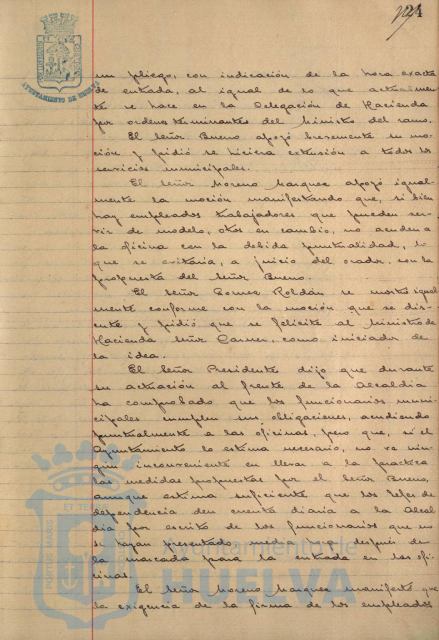 24
AYUNTAMIENTO DE HUELVA
un pliego, con indicación de la hora exacta
de entrada, al igual de lo que actualmen
te se hace en la Delegación de Hacienda
por ordenes terminantes del Ministro del ramo.
El Señor Bueno apoyó brevemente su mo
ción y pidió se hiciera extensión a todos los
servicios municipales.
El Señor Moreno Marquez apoyó igual-
mente la moción manifestando que, si bien
hay empleados trabajadores que pueden ser-
vir de modelo, otros en cambio, no acuden a
la oficina con la debida puntualidad, lo
que se evitaria, a juicio del orador, con la
propuesta del Señor Bueno.
El Señor Gomez Roldán se mostró igual
mente conforme con la moción que se dis-
cute y pidió que se felicite al Ministro de
Hacienda Señor Carner, como iniciador de
la idea.
El Señor Presidente dijo que durante
su actuación al frente de la Alcaldia
ha comprobado que los funcionarios muni-
cipales cumplen sus obligaciones, acudiendo
puntualmente a las oficinas, pero que, si el
Ayuntamiento lo estima necesario, no ve nin-
gun inconveniente en llevar a la practica
las medidas propuestas por el Señor Bueno,
aunque estima suficiente que los Jefes de
dependencia den cuenta diaria a la Alcal
dia por escrito de los funcionarios que no
se hayan presentado media hora después de
la marcada para la entrada en las ofi-
cinas.
El Señor Moreno Marquez manifestó que
la exigencia de la firma de los empleados
Ayuntamiento de
HUELVA